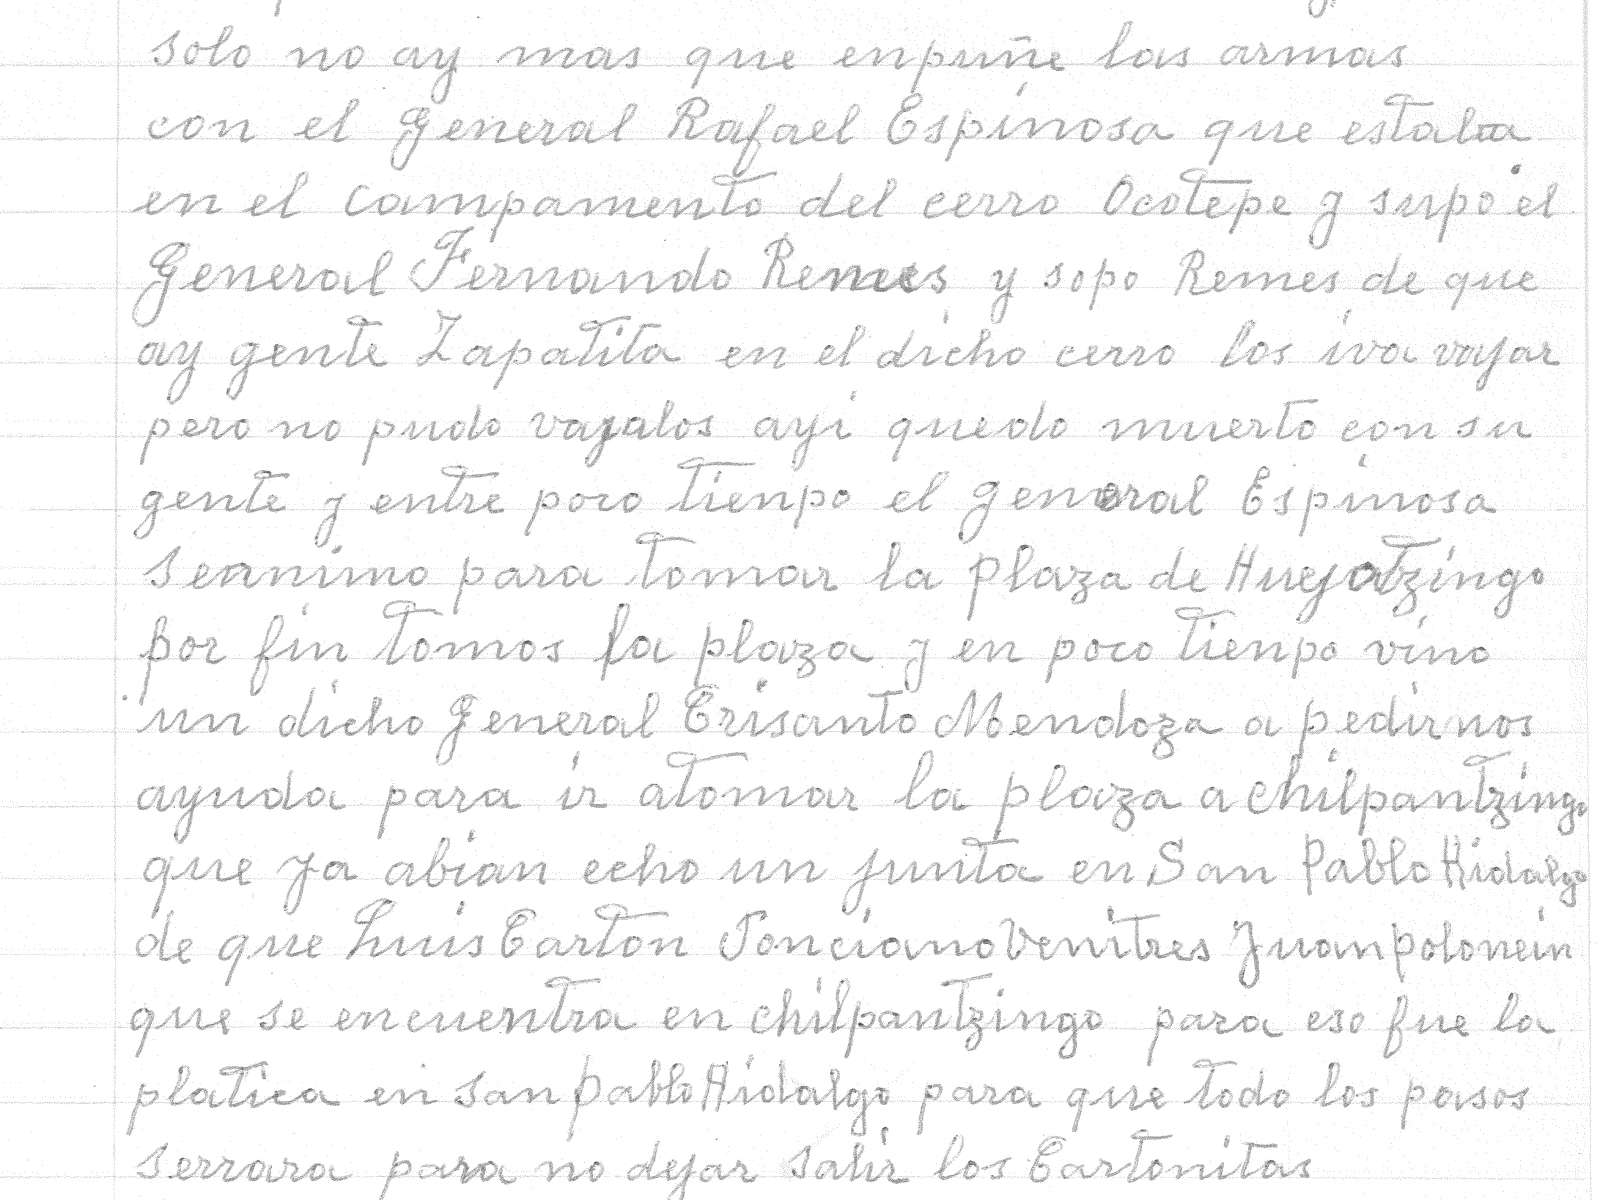 solo no ay mas que enpuñe las armas
con el General Rafael Espinosa que estaba
en el campamento del cerro Ocotepe y supo el
General Fernando Remes y sopo Remes de que
ay gente Zapatita en el dicho cerro los iva vajar
pero no pudo vajalos ayi quedo muerto con su
gente y entre poco tienpo el general Espinosa
seanimo para tomar la plaza de Huejatzingo
por fin tomos la plaza y en poco tienpo vino
un dicho General Crisanto Mendoza a pedirnos
ayuda para ir atomar la plaza a chilpantzingo
que ya abian echo un junta en San Pablo Hidalgo
de que Luis Carton Ponciano Venitres Juan polonein
que se encuentra en chilpantzingo para eso fue la
platica en San Pablo Hidalgo para que todo los pasos
serrara para no dejar salir los Cartonitas